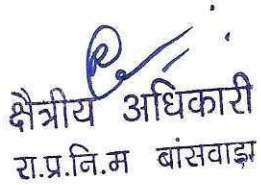 क्षैत्रीय अधिकारी
रा.प्र.नि.म बांसवाड़ा